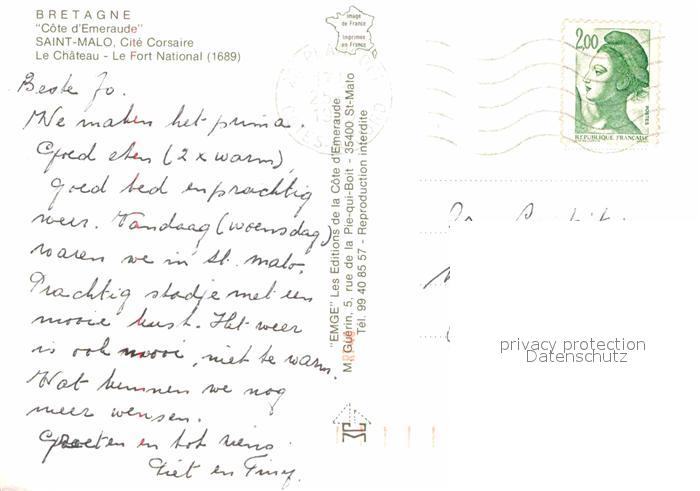 BRETAGNE
"Côte d'Emeraude"
SAINT-MALO, Cité Corsaire
Le Château - Le Fort National (1689)
Beste Jo.
We maken het prima.
Goed eten (2 x warm),
goed bed en prachtig
weer. Vandaag (woensdag)
waren we in St. Malo.
Prachtig stadje met een
mooie kust. Het weer
is ook mooi, niet te warm.
Wat kunnen we nog
meer wensen.
Groeten en tot ziens
Piet en
Image
de France
Imprimée
en France
"EMGE" Les Editions de la Côte d'Emeraude
M. Guérin, 5, rue de la Pie-qui-Boit - 35400 St-Malo
Tél. 99 40 85 57 - Reproduction interdite
2,00
POSTES
REPUBLIQUE FRANÇAISE
privacy protection
Datenschutz